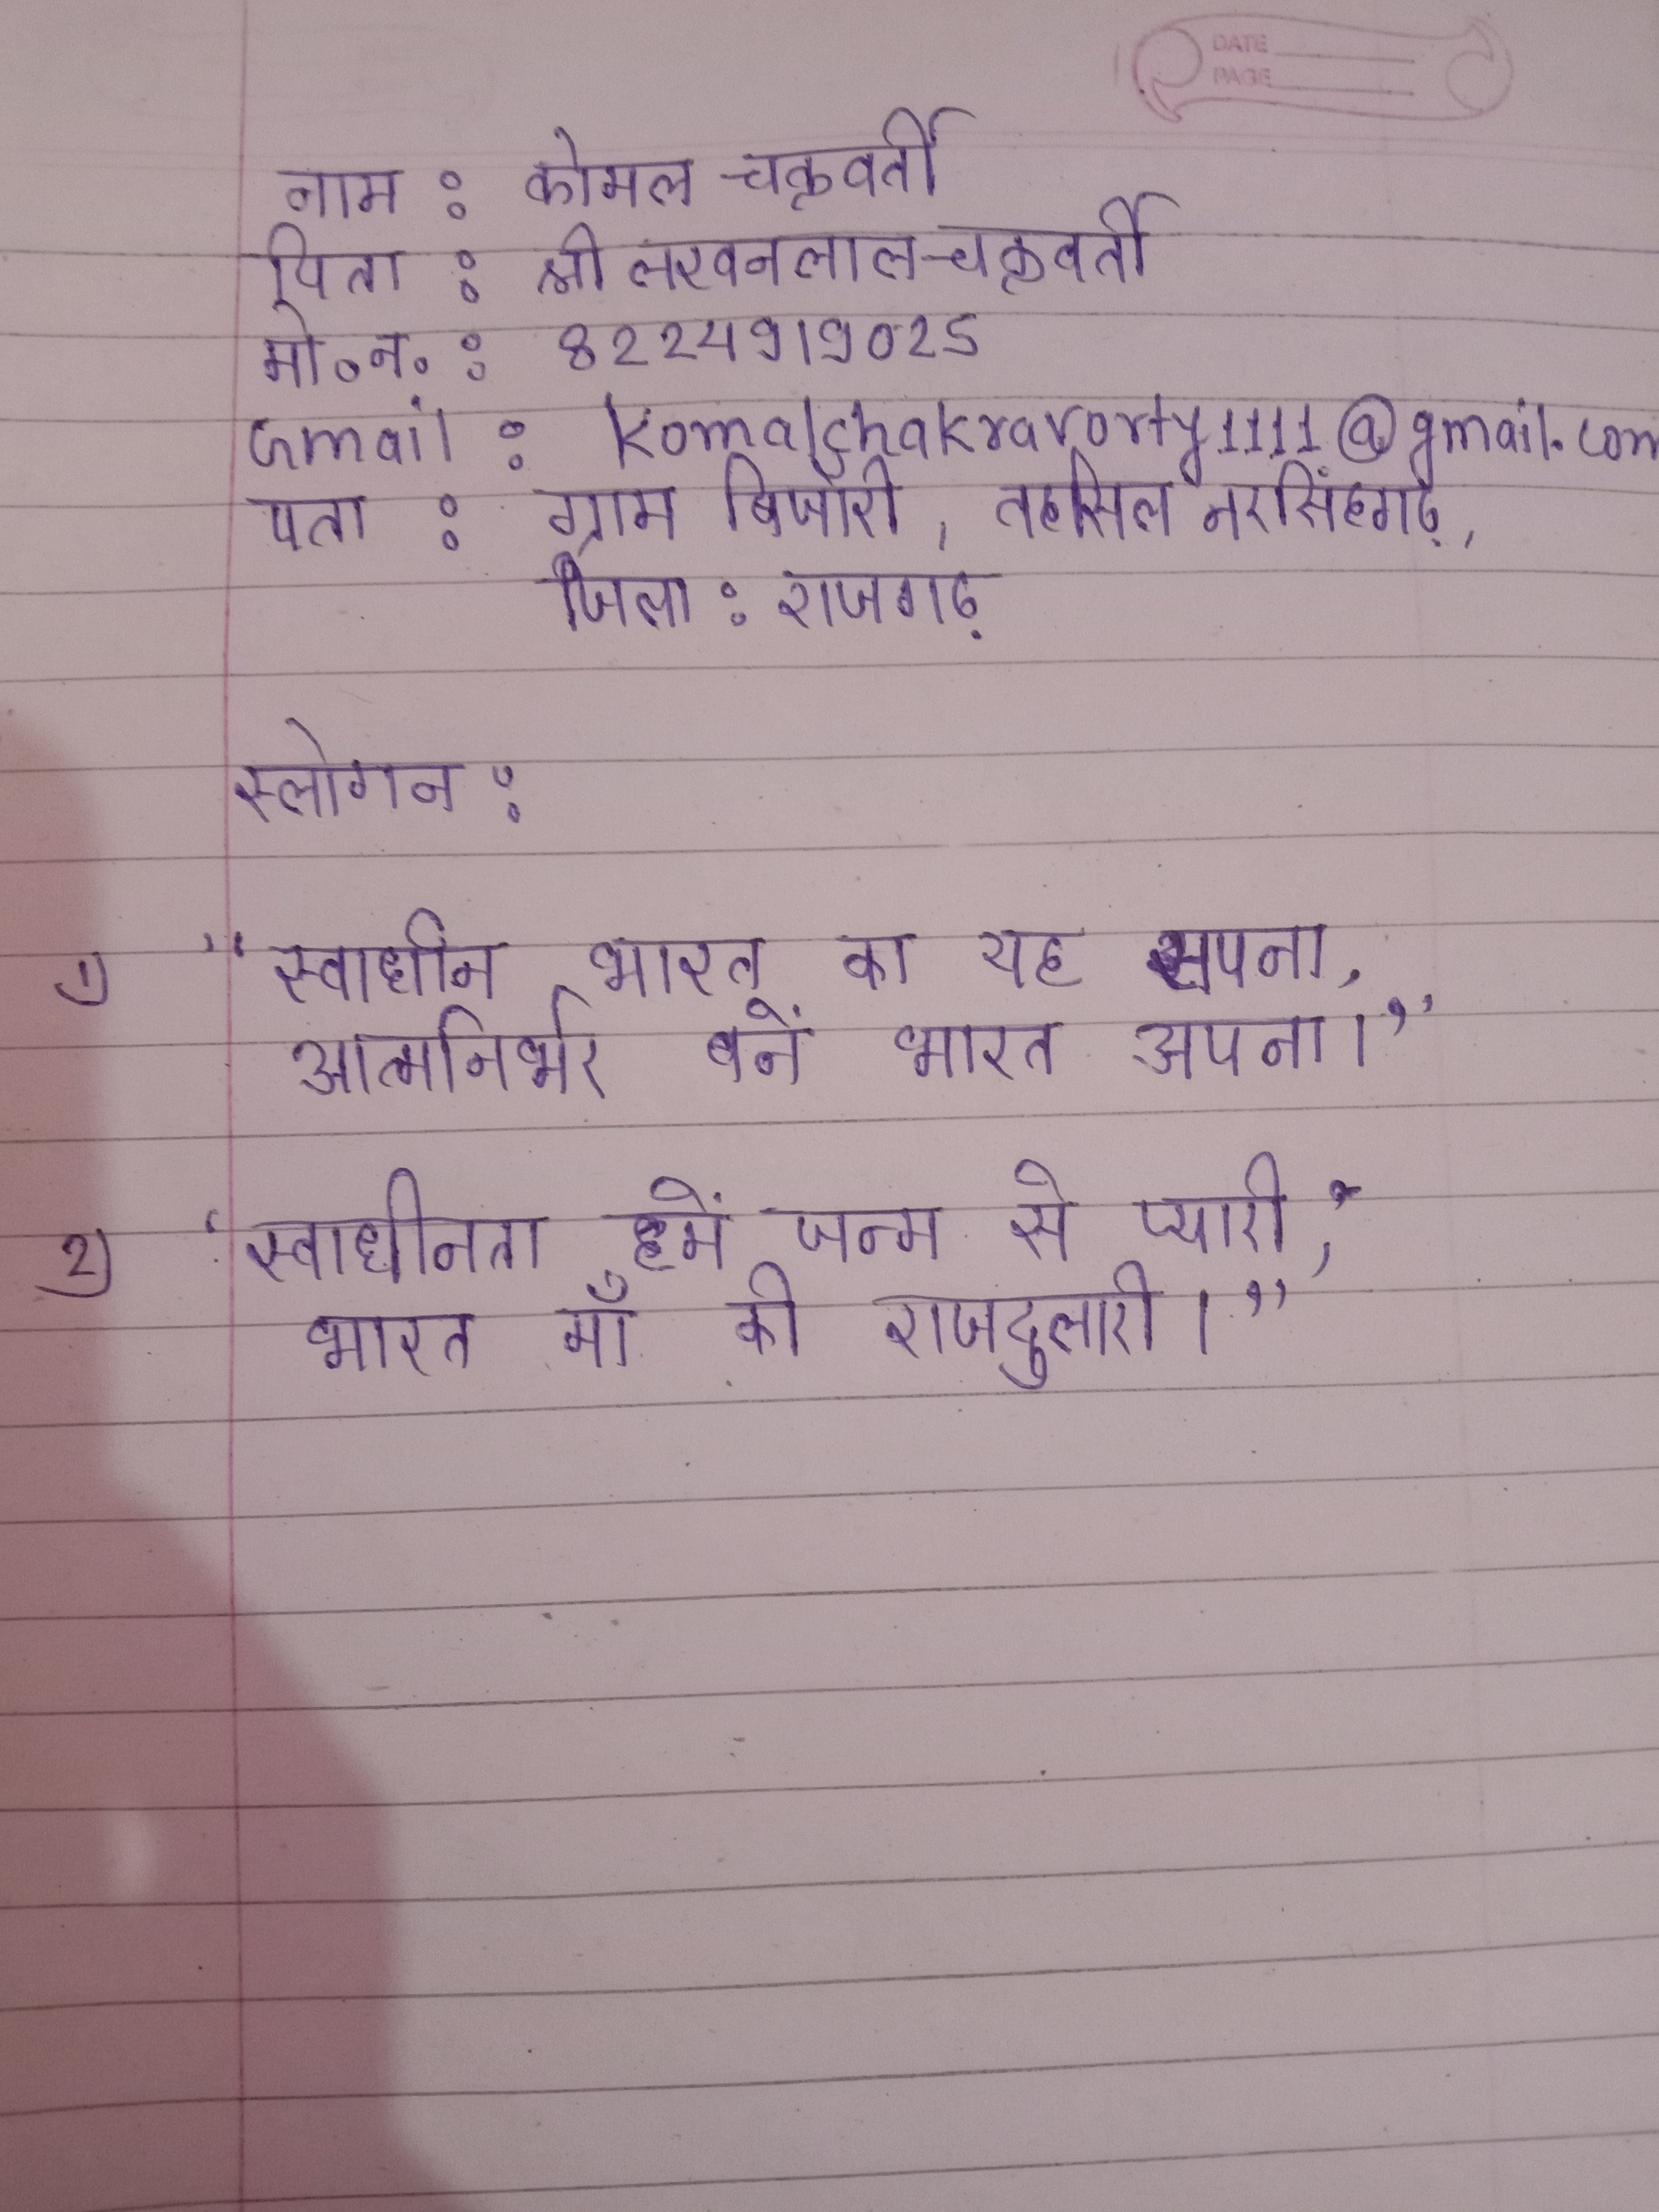 DATE
PAGE
नाम : कोमल चक्रवर्ती
पिता : श्री लखनलाल चक्रवर्ती
मो०न० : 8224919025
Gmail : komalchakravorty1111@gmail.com
पता : ग्राम बिजोरी, तहसिल नरसिंहगढ़,
जिला : राजगढ़
स्लोगन :
1) "स्वाधीन भारत का यह सपना,
आत्मनिर्भर बनें भारत अपना।"
2) 'स्वाधीनता हमें जन्म से प्यारी,
भारत माँ की राजदुलारी।"